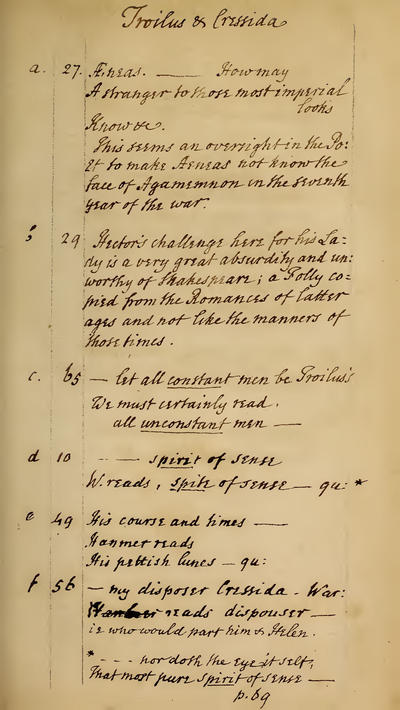 Troilus & Cressida
a. 27. Æneas. —— How may
A stranger to those most imperial
looks
Know &c.
This seems an oversight in the Po:
et to make Aeneas not know the
face of Agamemnon in the seventh
year of the war.
b 29 Hector's challenge here for his La:
dy is a very great absurdity and un:
worthy of Shakespeare; a Folly co=
pied from the Romances of latter
ages and not like the manners of
those times.
c. 65 — let all constant men be Troilus's
We must certainly read.
all unconstant men —
d 10 —— spirit of sense
W. reads, spite of sense — qu: *
e 49 His course and times —
Hanmer reads
His pettish lunes — qu:
f 56 — my disposer Cressida - War:
reads dispouser —
ie who would part him & Helen.
* - - - nor doth the Eye itself,
That most pure spirit of sense —
p. 69